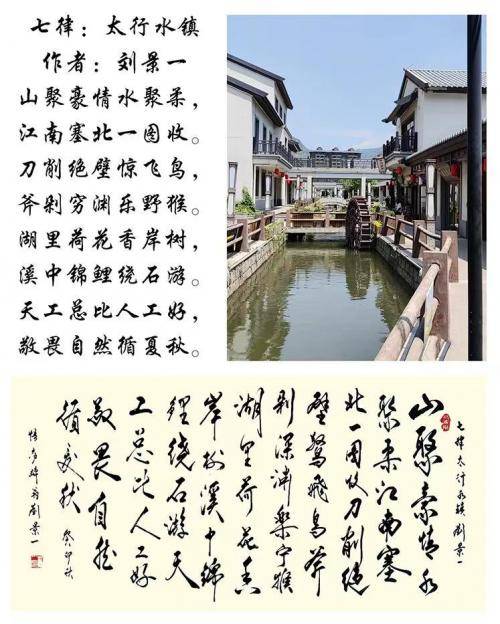 七律：太行水镇
作者：刘景一
山聚豪情水聚柔，
江南塞北一图收。
刀削绝壁惊飞鸟，
斧剁穷渊乐野猴。
湖里荷花香岸树，
溪中锦鲤绕石游。
天工总比人工好，
敬畏自然循夏秋。
七律太行水镇 刘景一
山聚豪情水
聚柔江南塞
北一图收刀削绝
壁驚飛鳥斧
剁深渊樂猴
湖里荷花香
岸树溪中錦
鲤绕石游天
工总比人工好
敬畏自然
循夏秋 癸卯秋
刘景一